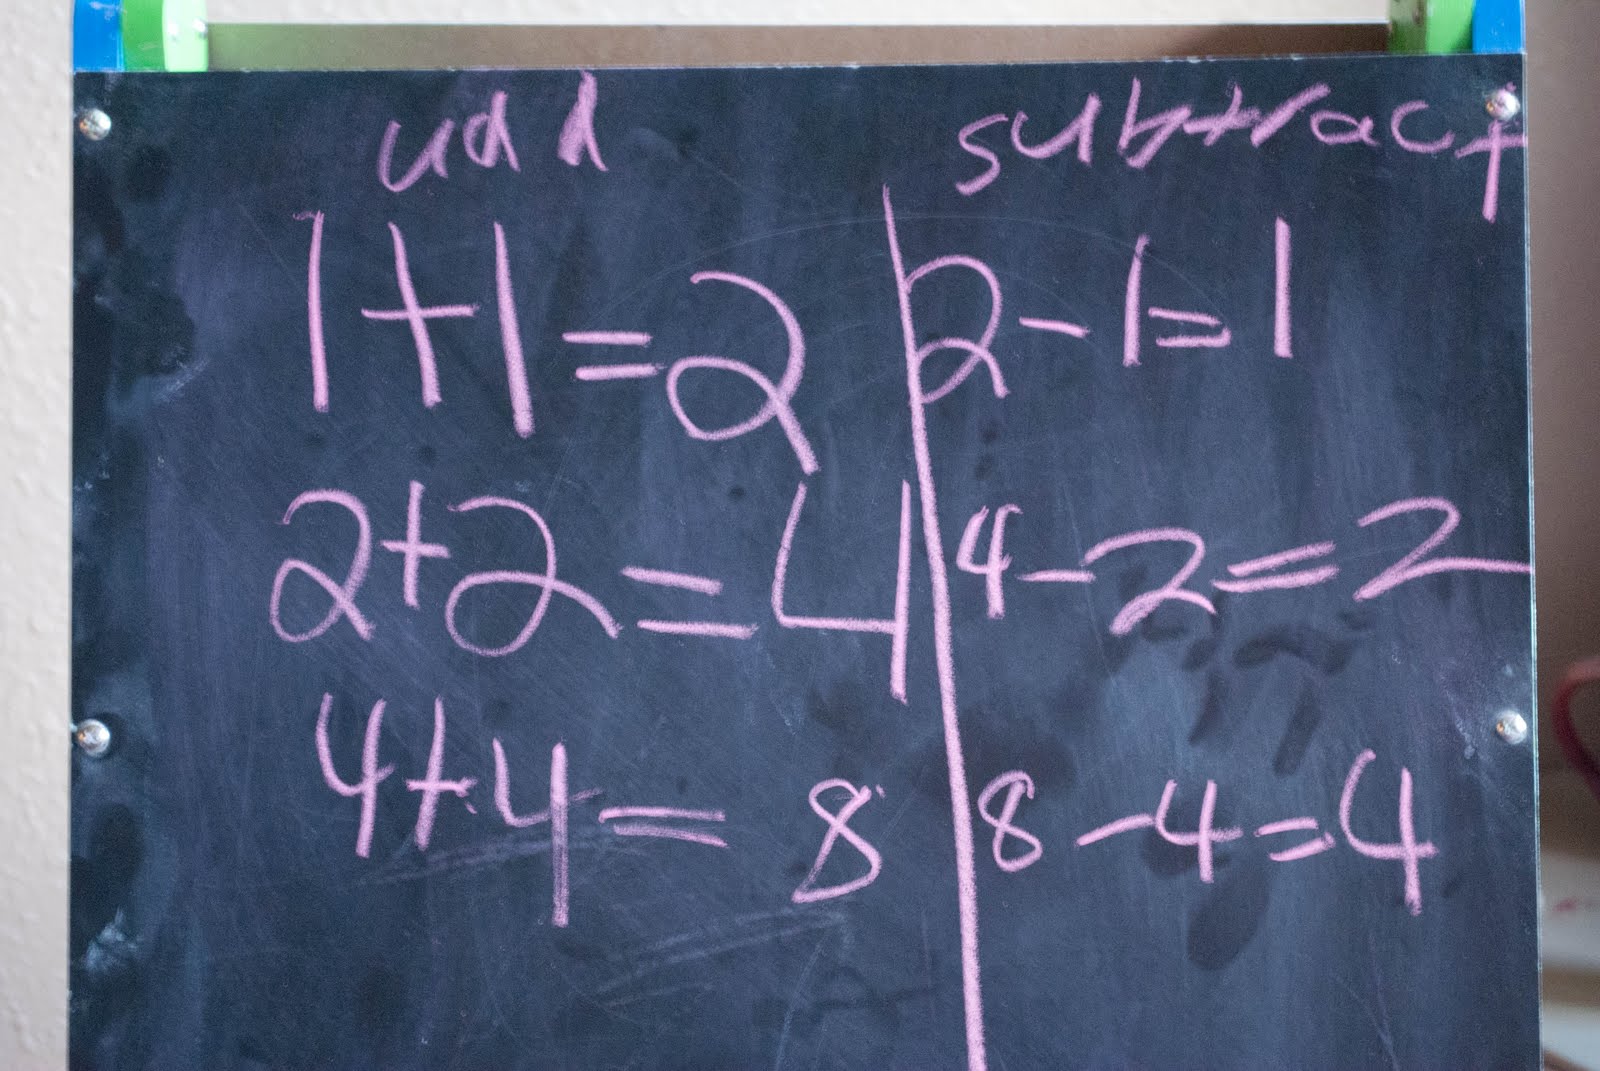 add
1+1=2
2+2=4
4+4=8
subtract
2-1=1
4-2=2
8-4=4